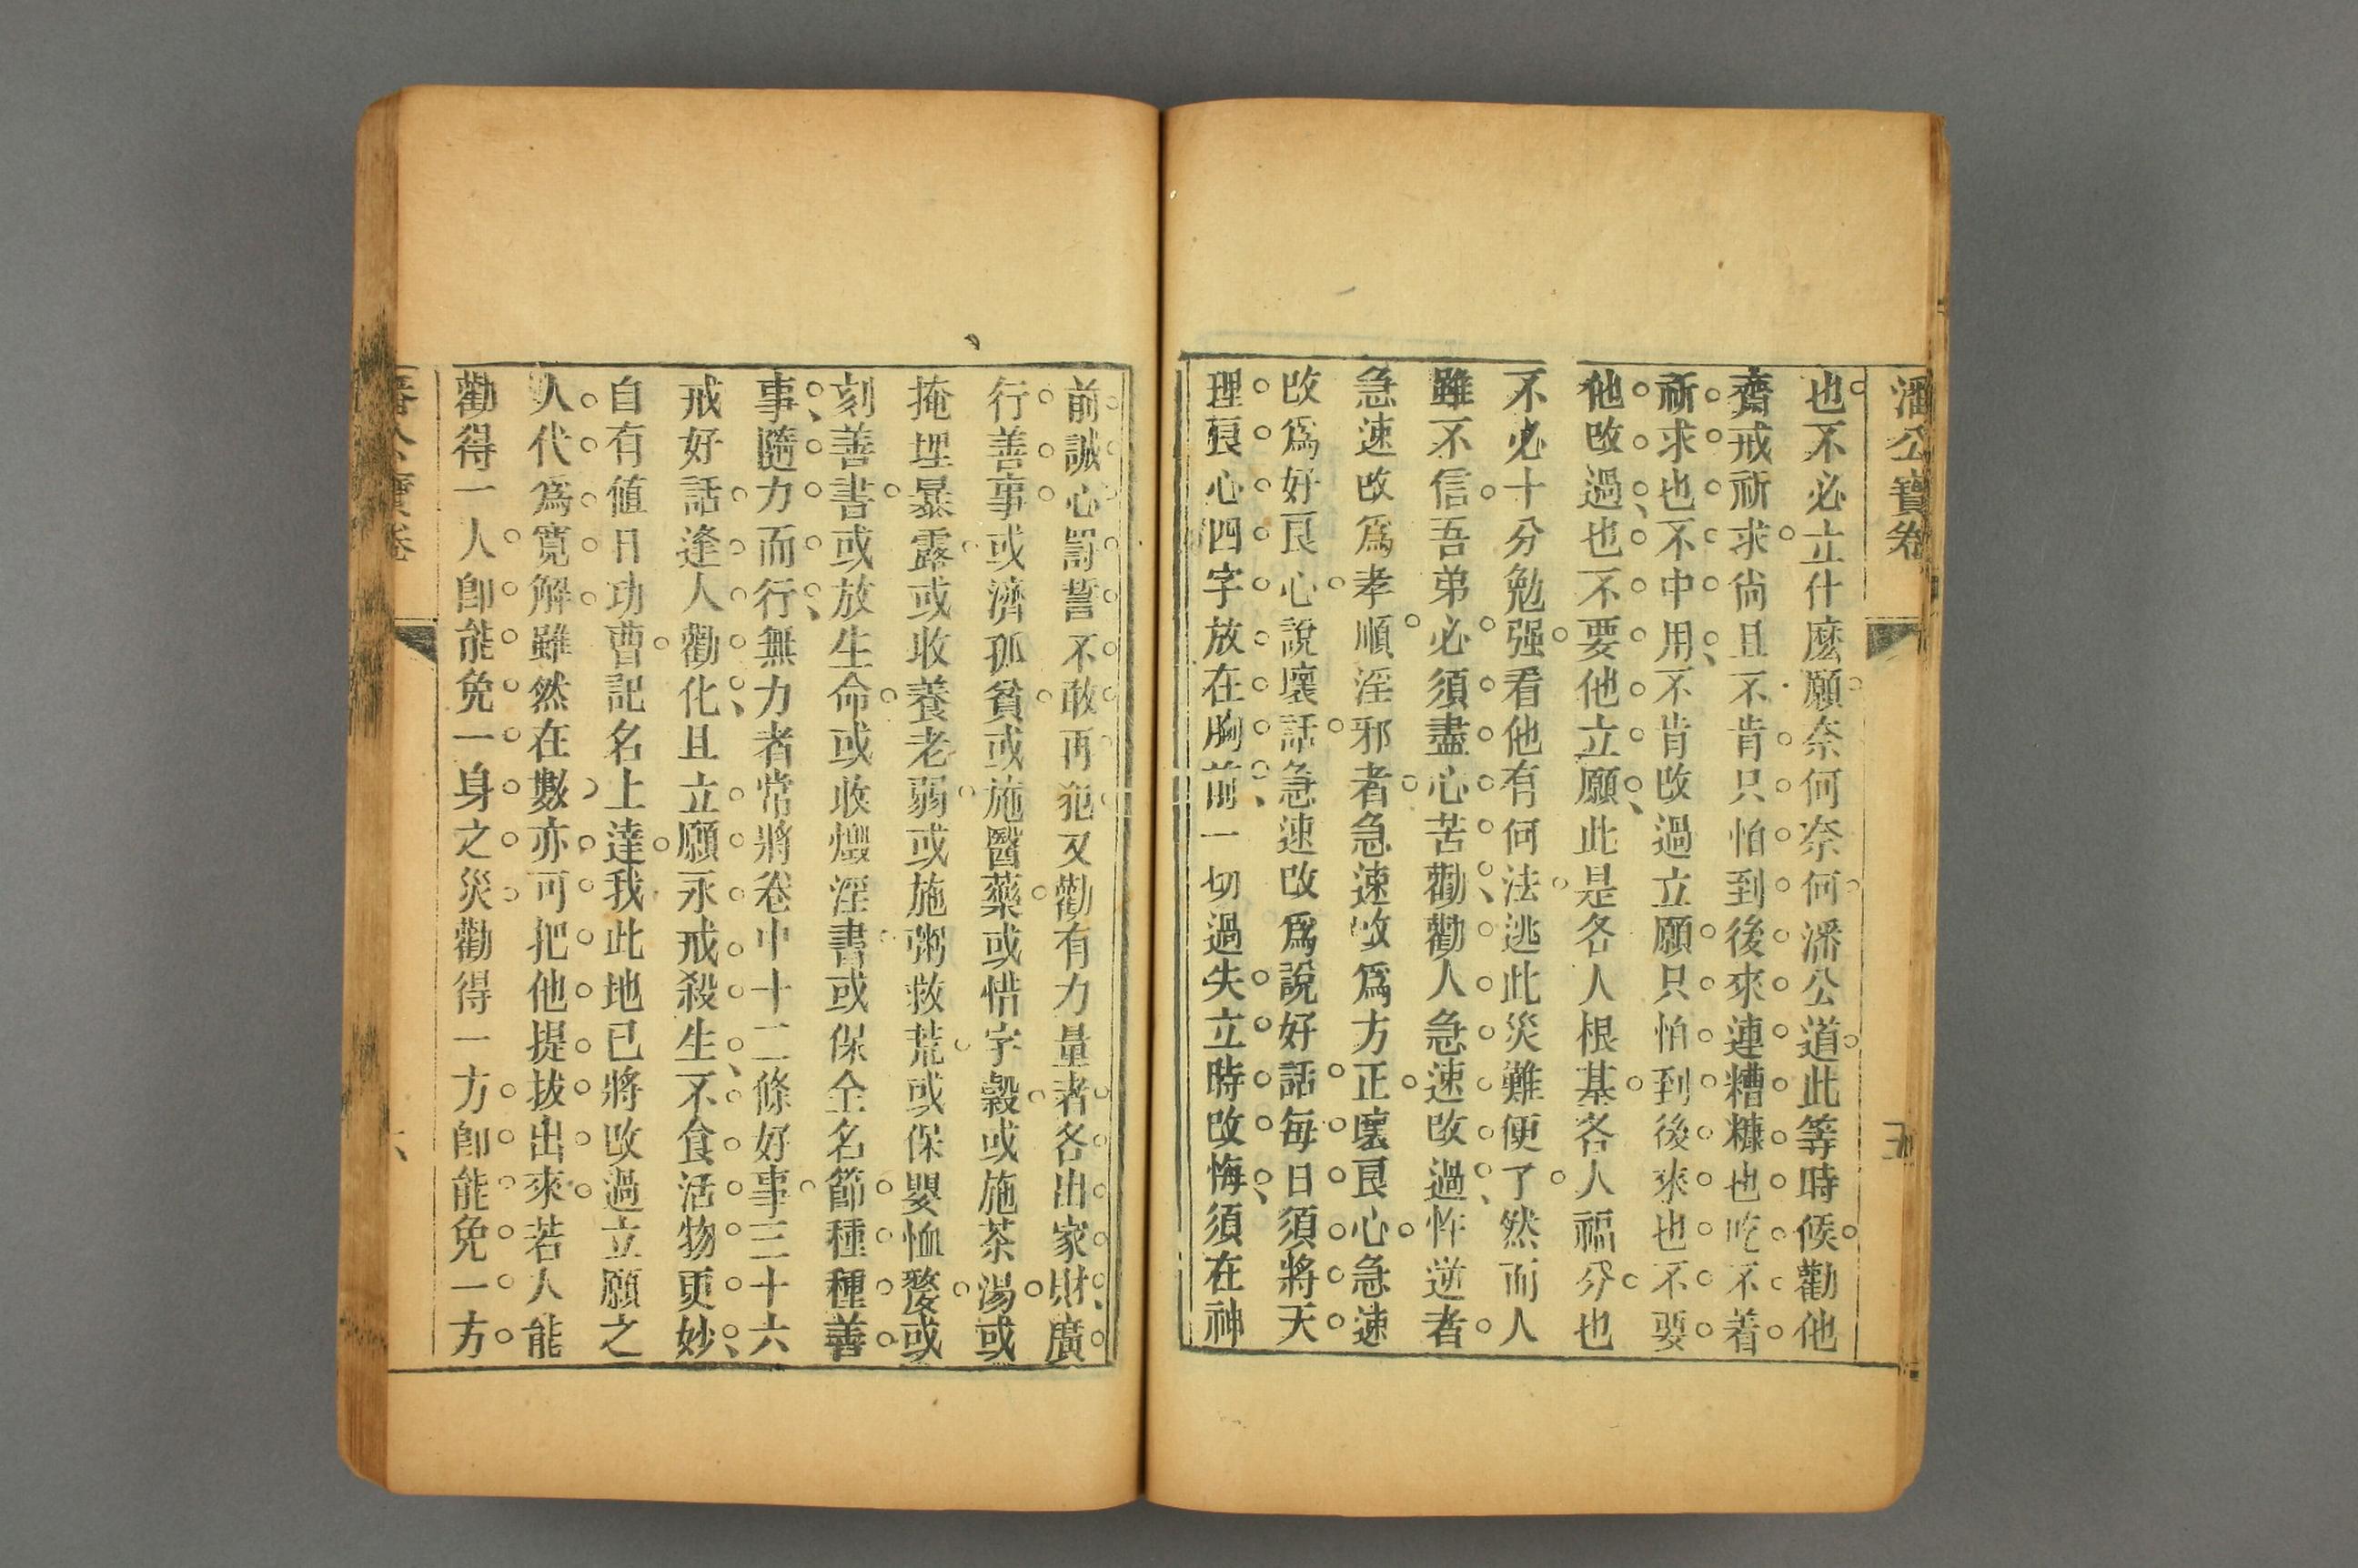 潘公寶卷
五
也不必立什麽願奈何奈何潘公道此等時候勸他
齋戒祈求尙且不肯只怕到後來連糟糠也吃不着
祈求也不中用不肯改過立願只怕到後來也不要
他改過也不要他立願此是各人根基各人福分也
不必十分勉强看他有何法逃此災難便了然而人
雖不信吾弟必須盡心苦勸勸人急速改過忤逆者
急速改爲孝順淫邪者急速改爲方正壞良心急速
改爲好良心說壞話急速改爲說好話每日須將天
理良心四字放在胸前一切過失立時改悔須在神
前誠心罰誓不敢再犯又勸有力量者各出家財廣
行善事或濟孤貧或施醫藥或惜字穀或施茶湯或
掩埋暴露或收養老弱或施粥救荒或保嬰恤嫠或
刻善書或放生命或收燬淫書或保全名節種種善
事隨力而行無力者常將卷中十二條好事三十六
戒好話逢人勸化且立願永戒殺生不食活物更妙
自有値日功曹記名上達我此地已將改過立願之
人代爲寬解雖然在數亦可把他提拔出來若人能
勸得一人卽能免一身之災勸得一方卽能免一方
潘公寶卷
六